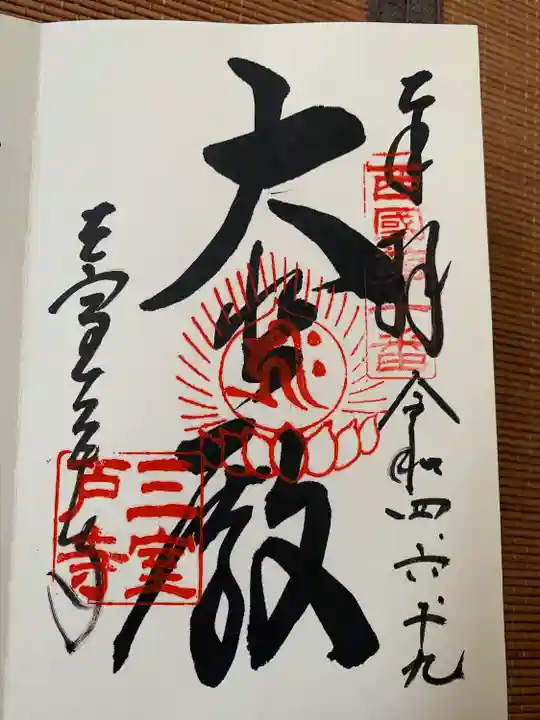 奉拝
西國第十番
令和四.六.十九
大悲殿
三室戸寺
三室戸寺